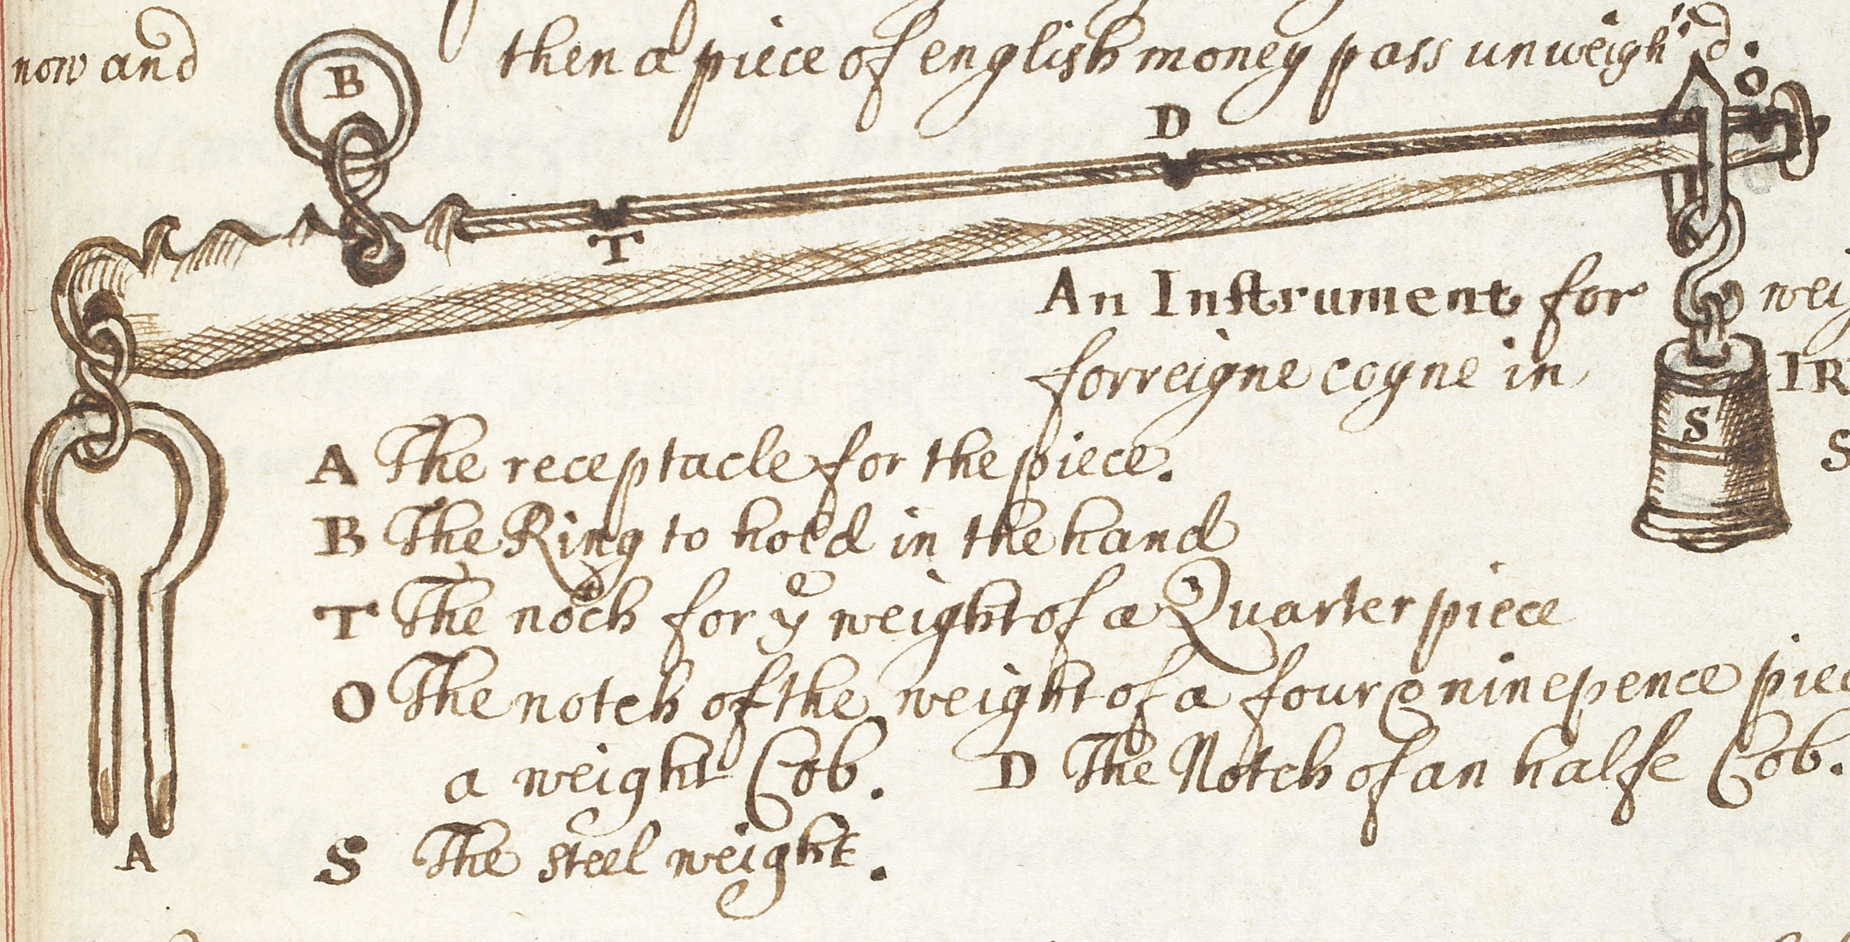 now and then a piece of english money pass unweigh'd.
B
O
D
T
An Instrument for wei
forreigne coyne in IR
S
S
A The receptacle for the piece.
B The Ring to hold in the hand
T The noch for yͤ weight of a Quarter piece
O The notch of the weight of a four & ninepence piec
a weight Cob. D The Notch of an halfe Cob.
A
S The steel weight.